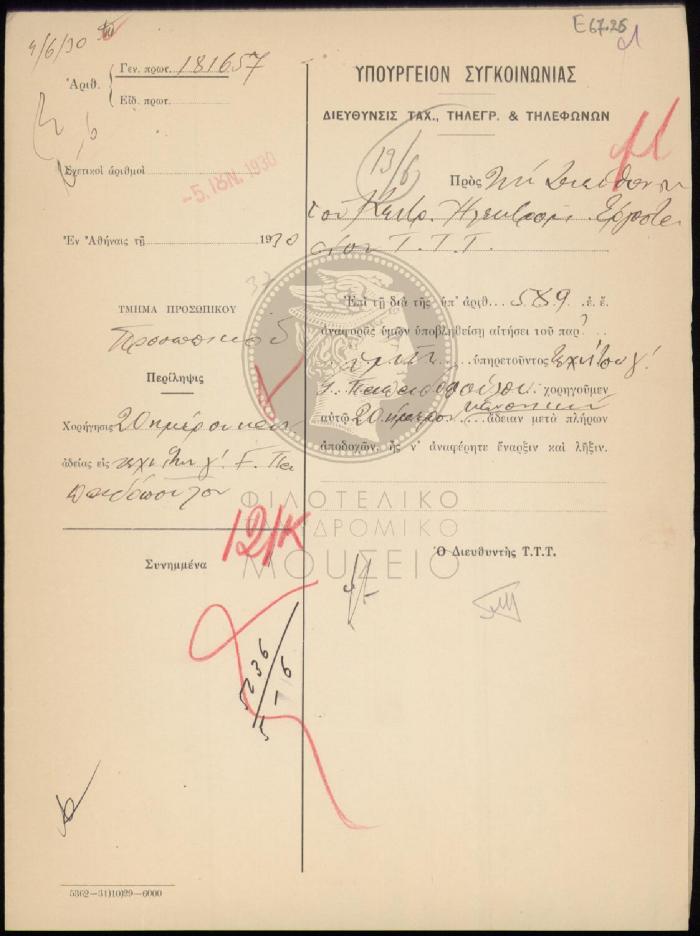 4/6/30
Ε67.26
Ἀριθ.
Γεν. πρωτ. 181657
Εἰδ. πρωτ.
Σχετικοὶ ἀριθμοὶ
-5. ΙΟΥΝ. 1930
Ἐν Ἀθήναις τῇ 1930
ΤΜΗΜΑ ΠΡΟΣΩΠΙΚΟΥ
Προσωπικοῦ
Περίληψις
Χορήγησις 20ημέρου καν.
ἀδείας εἰς τεχνίτην γ΄. Γ. Πα
παδόπουλον
Συνημμένα
12/Κ
5236
5-6
5362—31)10)29—6000
ΥΠΟΥΡΓΕΙΟΝ ΣΥΓΚΟΙΝΩΝΙΑΣ
ΔΙΕΥΘΥΝΣΙΣ ΤΑΧ., ΤΗΛΕΓΡ. & ΤΗΛΕΦΩΝΩΝ
19/6
Πρὸς τὴν Διεύθυνσιν
τοῦ Κεντρ. Ἠλεκτροτ. Ἐργοστα
σίου Τ.Τ.Τ.
Ἐπὶ τῇ διὰ τῆς ὑπ' ἀριθ. 589 ἐ. ἔ.
ἀναφορᾶς ὑμῶν ὑποβληθείσῃ αἰτήσει τοῦ παρ'
ὑμῖν ὑπηρετοῦντος τεχνίτου γ΄
Γ. Παπαδοπούλου χορηγοῦμεν
αὐτῷ 20ήμερον κανονικὴν ἄδειαν μετὰ πλήρων
ἀποδοχῶν, ἧς ν' ἀναφέρητε ἔναρξιν καὶ λῆξιν.
Ὁ Διευθυντὴς Τ.Τ.Τ.
ΦΙΛΟΤΕΛΙΚΟ
ΤΑΧΥΔΡΟΜΙΚΟ
ΜΟΥΣΕΙΟ